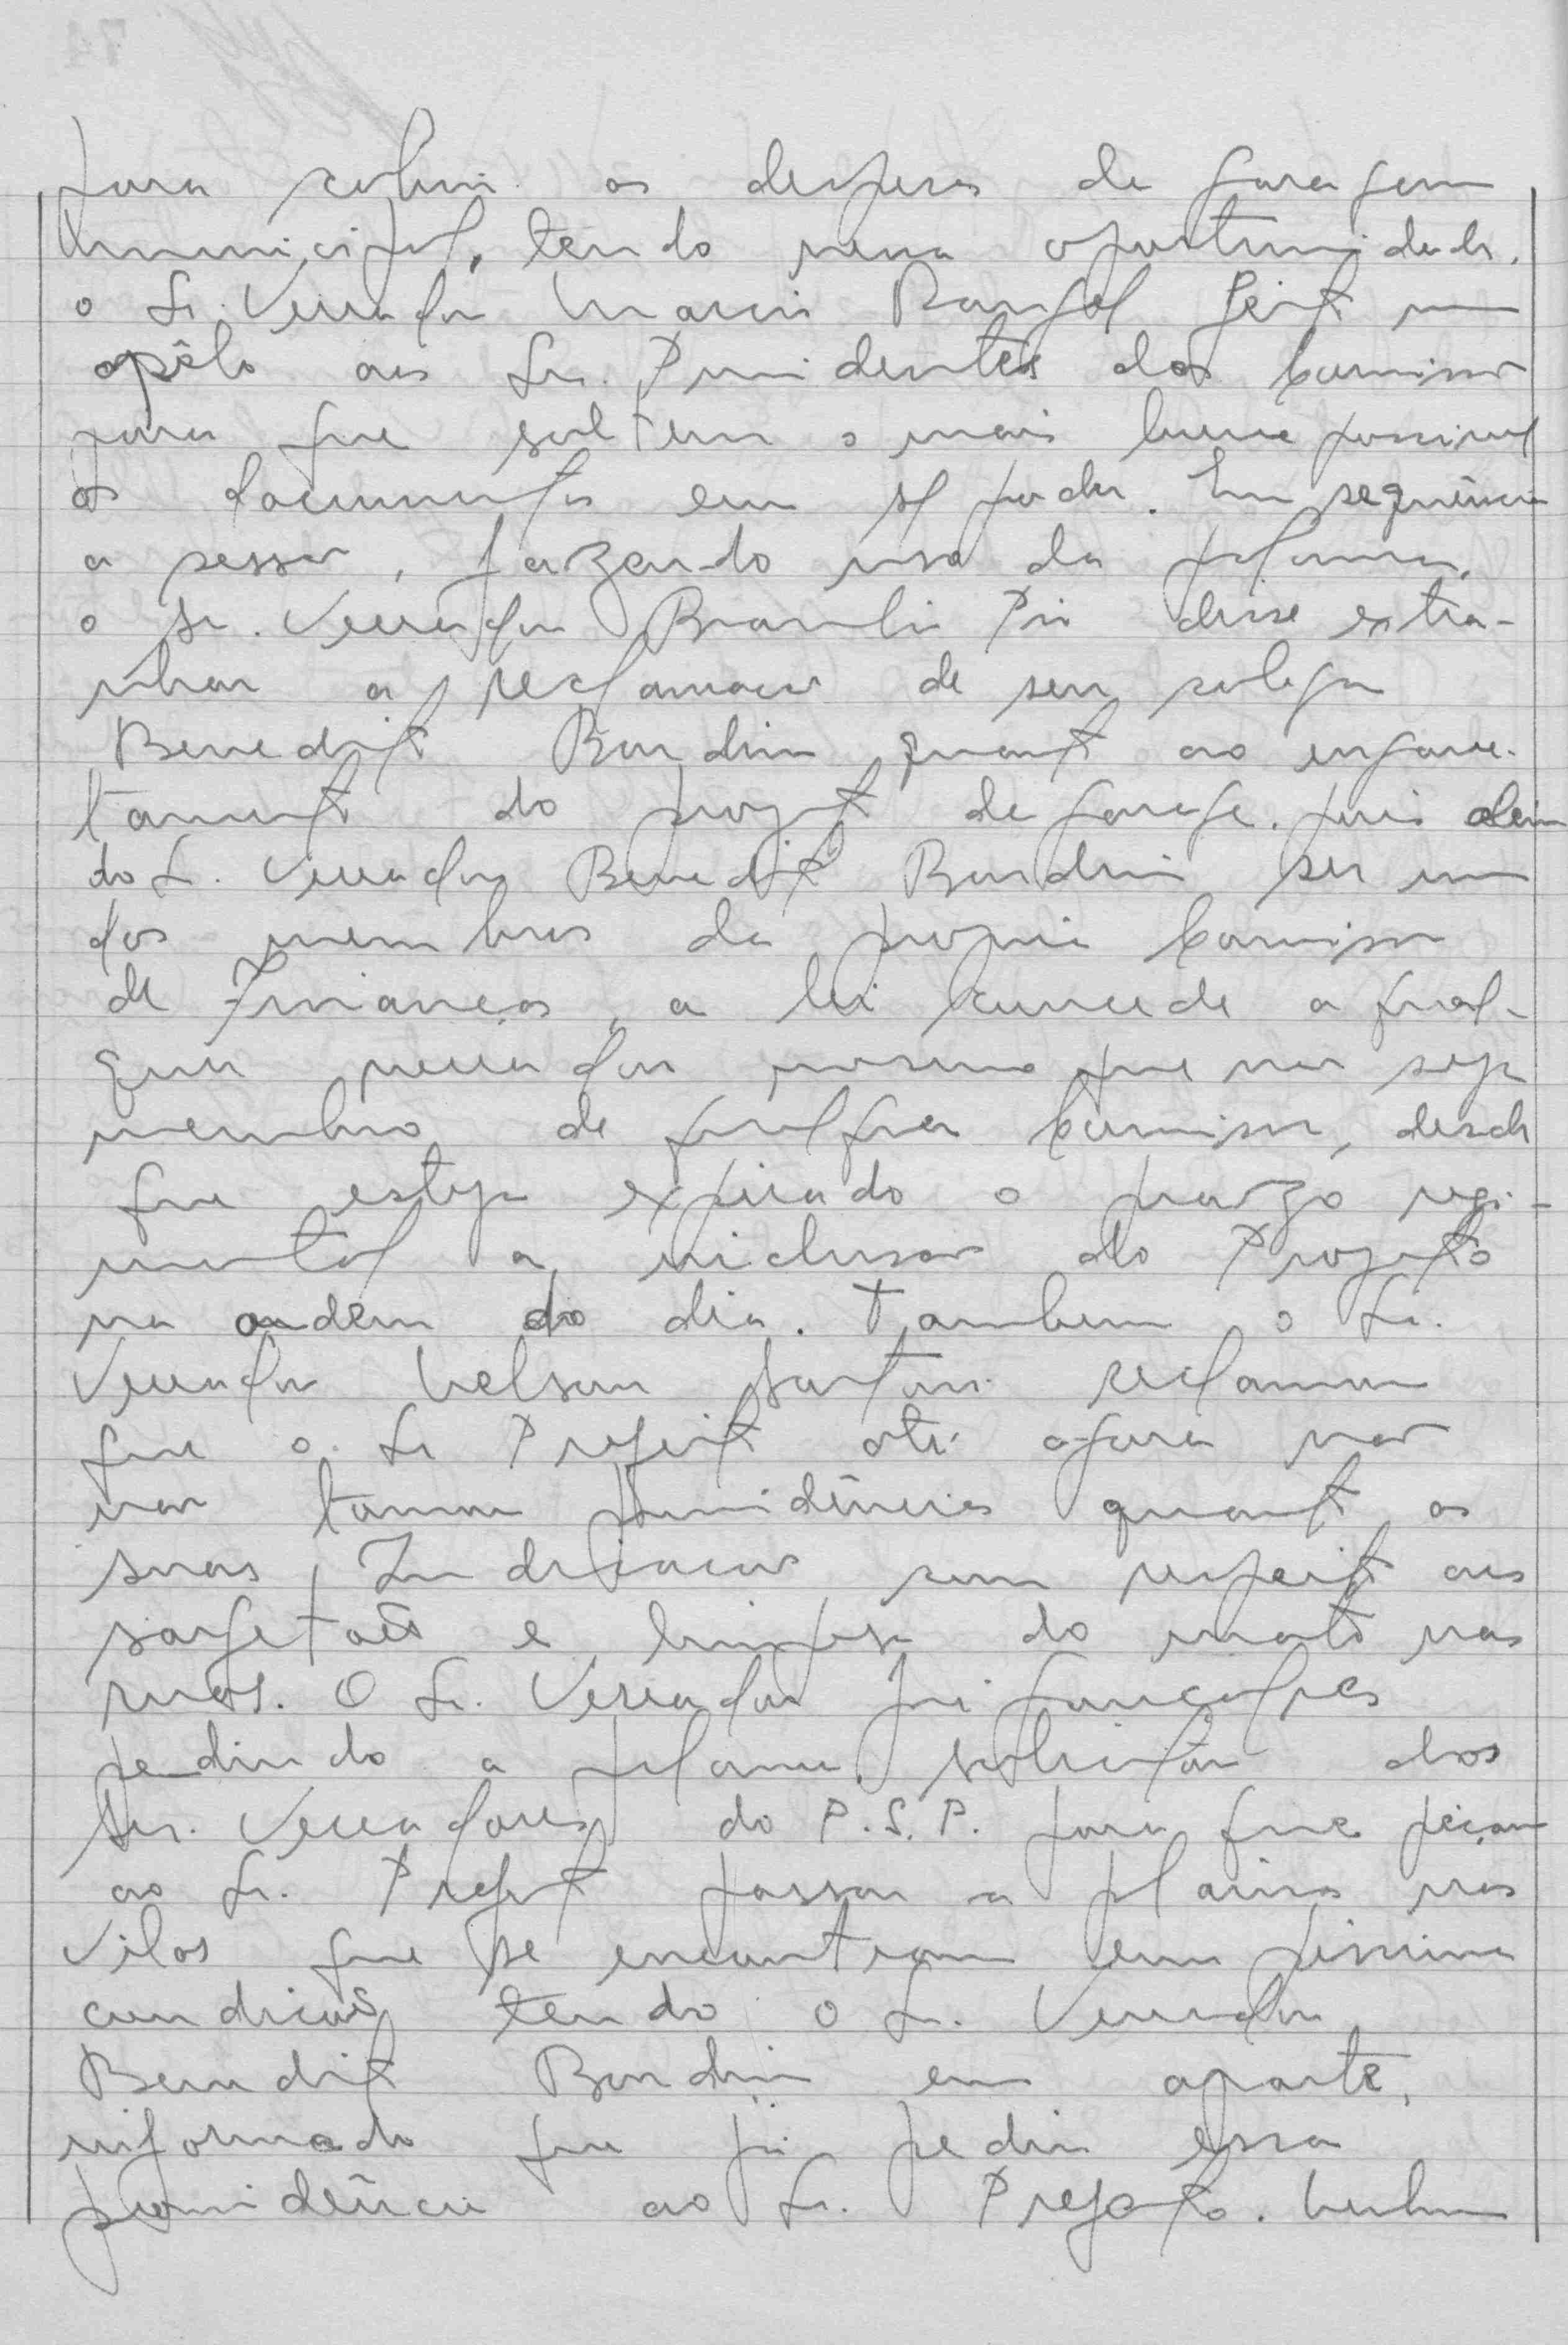 para cobrir as despesas de garagem
municipal, tendo nessa oportunidade,
o Sr. Vereador Marcio Rangel feito um
apêlo aos Srs. Presidentes das Comissões
para que soltem o mais breve possivel
os documentos em s/ poder. Em sequência
a sessão, fazendo uso da palavra,
o Sr. Vereador Braulio Pio disse extra-
nhar a reclamação de seu colega
Benedito Bondim quanto ao engave-
tamento do projeto de garage. pois alem
do Sr. Vereador Benedito Bondim ser um
dos membros da propria Comissão
de Finanças, a lei concede a qual-
quer vereador mesmo que não seja
membro de qualquer Comissão, desde
que esteja expirado o prazo regi-
mental a inclusão do Projeto
na ordem do dia. Tambem o Sr.
Vereador Nelson Santoni reclamou
que o Sr Prefeito até agora não
não tomou providências quanto as
suas Indicações com respeito aos
sargetões e limpesa do mato nas
ruas. O Sr. Vereador José Gonçalves
pedindo a palavra, solicitou dos
Srs. Vereadores do P.S.P. para que peçam
ao Sr. Prefeito passar a plaina nas
Vilas que se encontram em pessima
condições tendo o Sr. Vereador
Benedito Bondim em aparte,
informado que já pediu essa
providência ao Sr. Prefeito. Nenhum